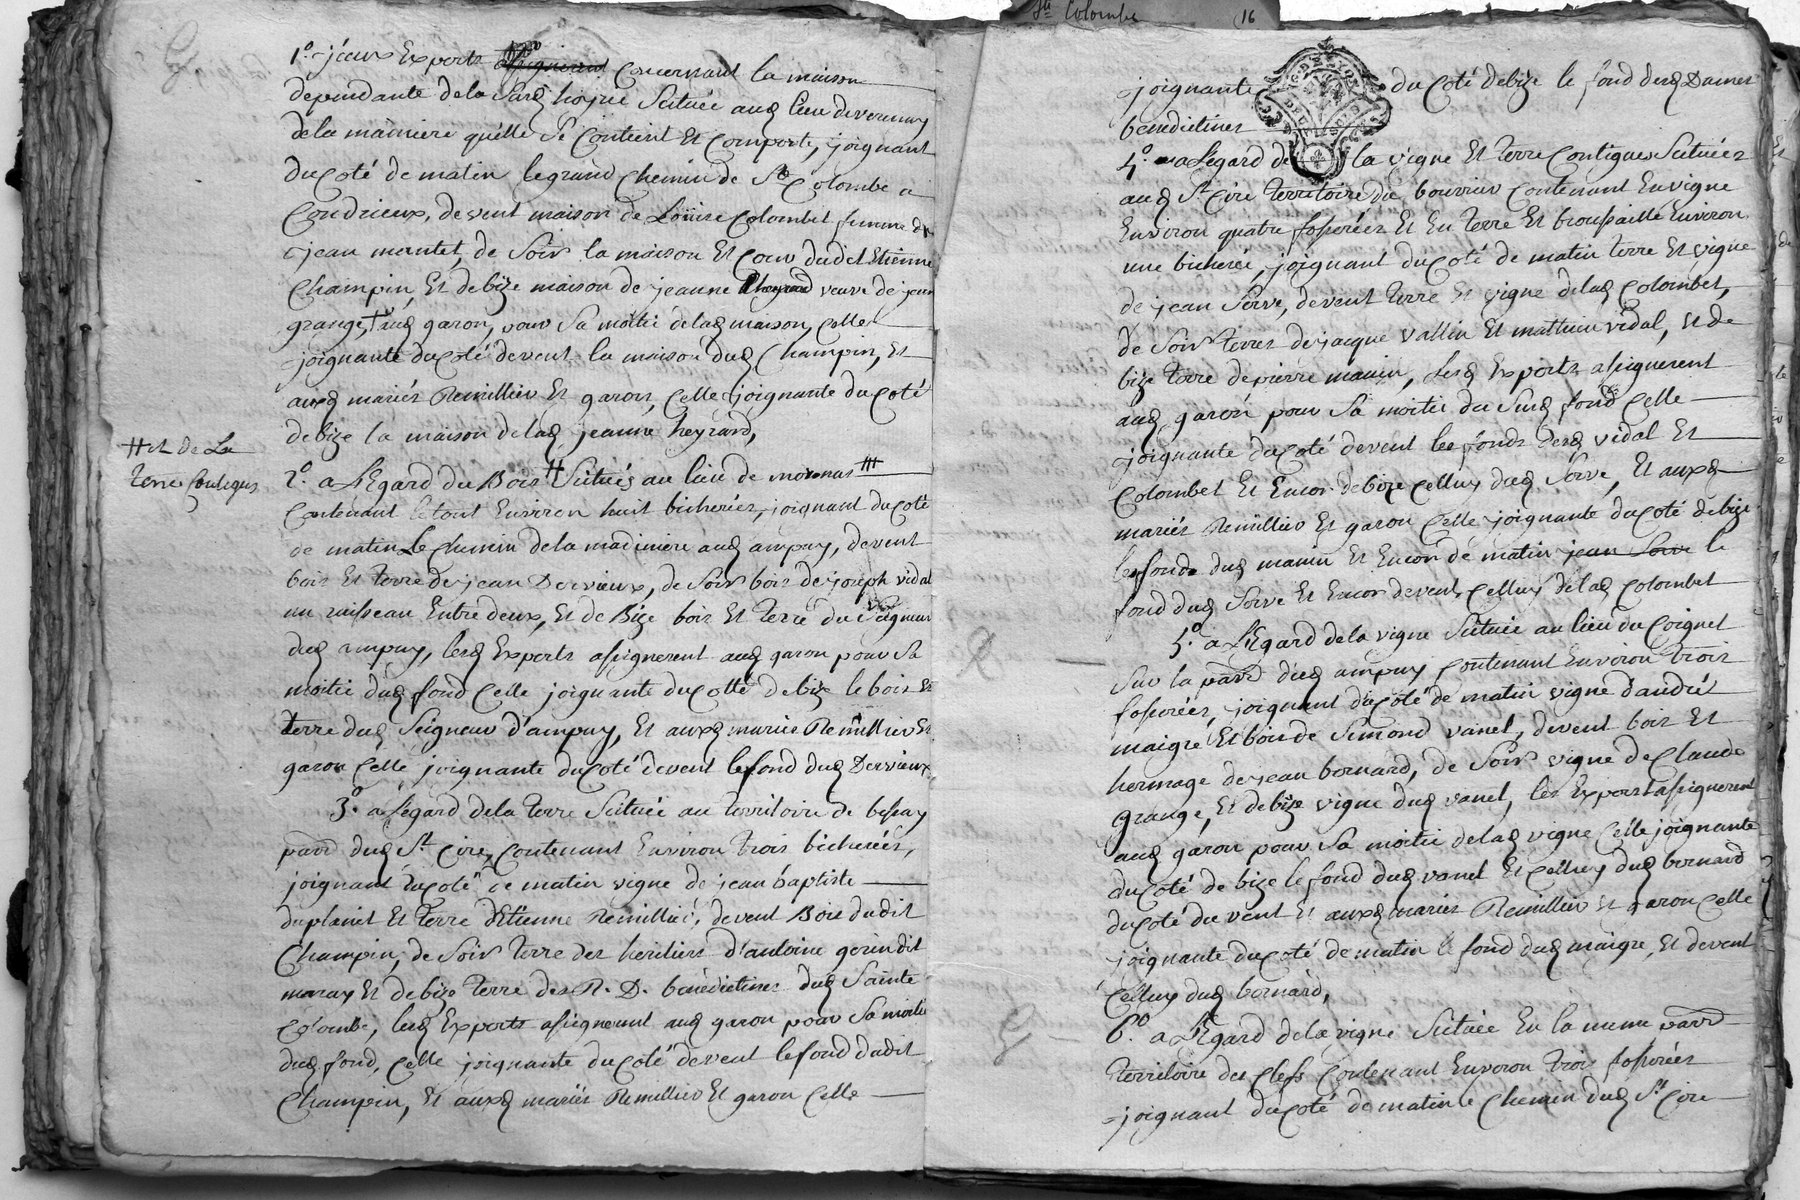 Ste Colombe
16
1.° iceux Experts concernant la maison
dependante de la Susd. hoyrie Scituée aud. lieu de verenay
de la maniere qu'elle Se Contient Et Comporte, joignant
du Coté de matin le grand Chemin de Ste Colombe a
Condrieux, de vent maison de Loüise Colombet femme de
jean mantet, de Soir la maison Et Cour dudit Etienne
Champin, Et de bize maison de jeanne heyrard veuve de jean
grange, aud. garon, pour Sa moitié de lad. maison, Celle
joignante du Coté de vent la maison dud. Champin, Et
auxd. mariés Remillieu Et garon, Celle joignante du Coté
de bize la maison de lad. jeanne heyrard,
Et de La
terre Contigue
2.° a L'Egard du Bois Scitués au lieu de morenas
Contenant le tout Environ huit bicherées, joignant du Coté
de matin Le Chemin de la madiniere aud. ampuy, de vent
bois Et terre de jean Dervieux, de Soir bois de joseph vidal
un ruisseau Entre deux, Et de Bize bois Et terre du Seigneur
dud. ampuy, lesd. Experts assignerent aud. garon pour Sa
moitié dud. fond Celle joignante du Cotté de bize le bois Et
terre dud. Seigneur d'ampuy, Et auxd. mariés Remillieu Et
garon Celle joignante du Coté de vent le fond dud. Dervieux
3.° a L'égard de la terre Scituée au territoire de bessay
parr. dud. St Cire, Contenant Environ trois bicherées,
joignant du Coté de matin vigne de jean baptiste
duplanit Et terre d'Etienne Remillieu, de vent Bois dudit
Champin, de Soir terre des heritiers d'antoine gerin dit
maray Et de bize terre des R. D. benedictines dud. Sainte
Colombe, lesd. Experts assignerent aud. garon pour Sa moitié
dud. fond, Celle joignante du Coté de vent le fond dudit
Champin, Et auxd. mariés Remillieu Et garon Celle
joignante du Coté de bize le fond desd. Dames
benedictines
4.° a L'égard de la vigne Et terre Contigues Scituées
aud. St Cire territoire du bouvier Contenant En vigne
Environ quatre fosserées Et En terre Et broussaille Environ
une bicherée, joignant du Coté de matin terre Et vigne
de jean Serve, de vent terre Et vigne de lad. Colombet,
de Soir terres de jacque vallin Et mathieu vidal, et de
bize terre de pierre manin, Lesd. Experts assignerent
aud. garon pour Sa moitié du Susd. fond Celle
joignante du Coté de vent les fonds desd. vidal Et
Colombet Et Encor de bize Celluy dud. Serve, Et auxd.
mariés Remillieu Et garon Celle joignante du Coté de bize
les fonds dud. manin Et Encor de matin jean Serve le
fond dud. Serve Et Encor de vent, Celluy de lad. Colombet
5.° a L'Egard de la vigne Scituée au lieu du Coignet
Sur la parr. dud. ampuy Contenant Environ trois
fosserées, joignant du Coté de matin vigne d'andré
maigre Et bois de Simond vanel, de vent bois Et
hermage de jean bornard, de Soir vigne de Claude
grange, Et de bize vigne dud. vanel, les Experts assignerent
aud. garon pour Sa moitié de lad. vigne Celle joignante
du Coté de bize le fond dud. vanel Et Celluy dud. bornard
du Coté du vent Et auxd. mariés Remillieu Et garon Celle
joignante du Coté de matin le fond dud. maigre, Et de vent
Celluy dud. bornard,
6.° a L'Egard de la vigne Scituée En la meme parr.
territoire des Contenant Environ trois fosserées
joignant du Coté de matin le Chemin dud. St Cire